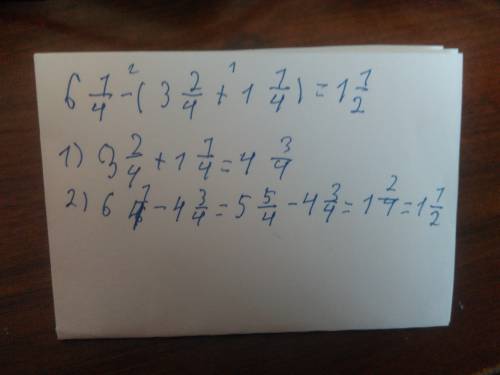 6 1/4 -² (3 2/4 +¹ 1 1/4) = 1 1/2
1) 3 2/4 + 1 1/4 = 4 3/4
2) 6 1/4 - 4 3/4 = 5 5/4 - 4 3/4 = 1 2/4 = 1 1/2